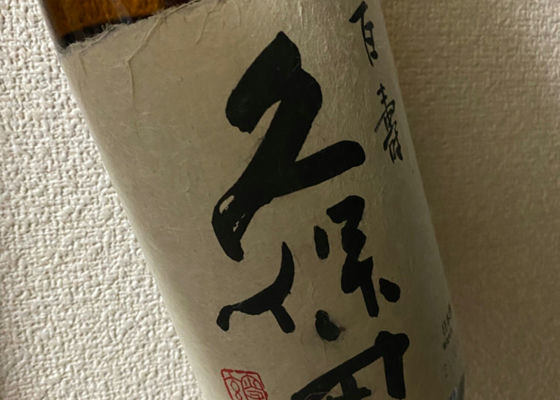 百壽
久保田